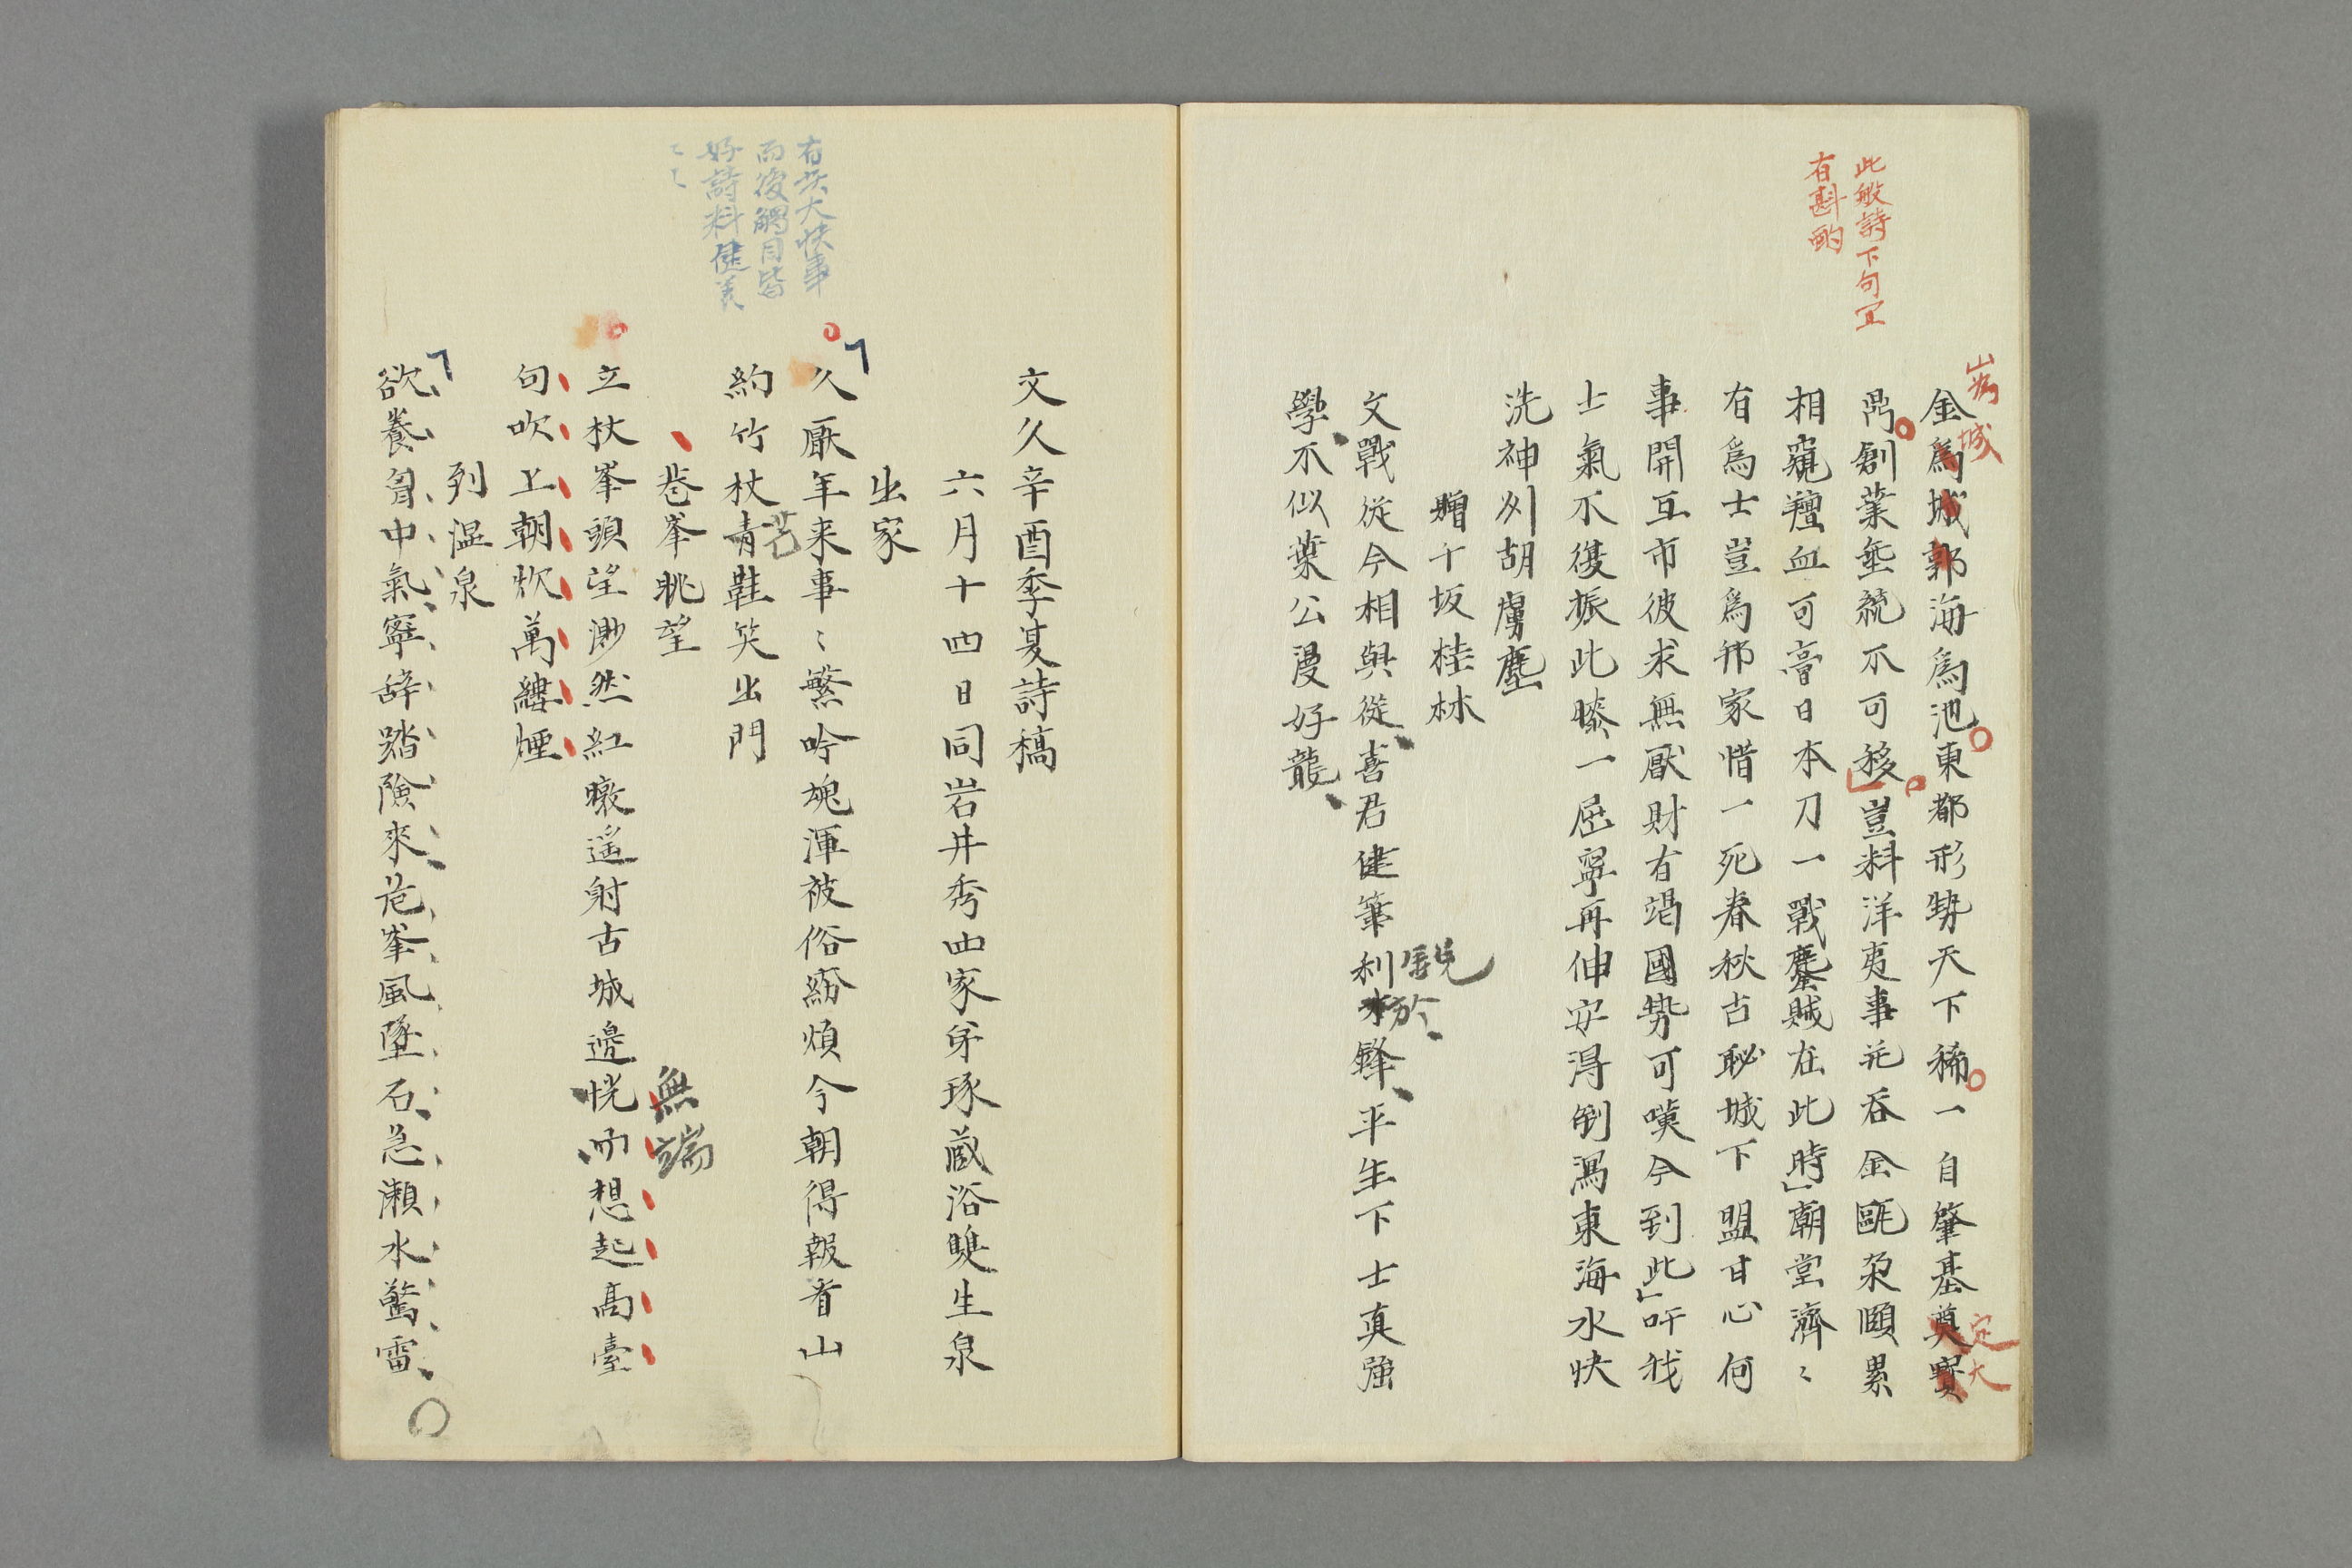 此般詩下句宜
有斟酌
山為
城
金爲城郭海爲池東都形勢天下稀一自肇基奠寶
定
大
鼎創業垂統不可移豈料洋夷事茫吞金甌朶頤累
相窺羶血可膏日本刀一戰鏖賊在此時廟堂濟〻
有爲士豈爲邦家惜一死春秋古恥城下盟甘心何
事開互市彼求無厭財有竭國勢可嘆今到此吁我
士氣不復振此膝一屈寧再伸安得倒瀉東海水快
洗神州胡虜塵
贈十坂桂林
文戰從今相與從喜君健筆利 鋒平生下士真強
銳
於
學不似葉公漫好龍
文久辛酉季夏詩稿
六月十四日同岩井秀四家弟琢蔵浴瞍生泉
出家
有此大快事
而後觸目皆
好詩料健羨
〻〻
久厭年来事〻繁吟魂渾被俗紛煩今朝得報看山
約竹杖青鞋笑出門
芒
巷峯眺望
立杖峯頭望渺然紅暾遥射古城邊恍 想起高臺
無端
句吹上朝炊萬縷煙
列温泉
欲養胷中氣寧辞踏険來危峯風墜石急瀨水驚雷